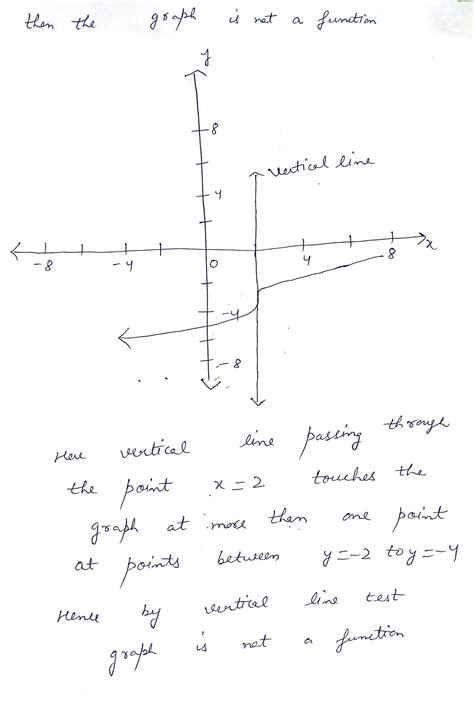 then the graph is not a function
y
8
vertical line
4
x
-8 -4 0 4 8
-4
-8
Here vertical line passing through
the point x = 2 touches the
graph at more then one point
at points between y=-2 to y=-4
Hence by vertical line test
graph is not a function